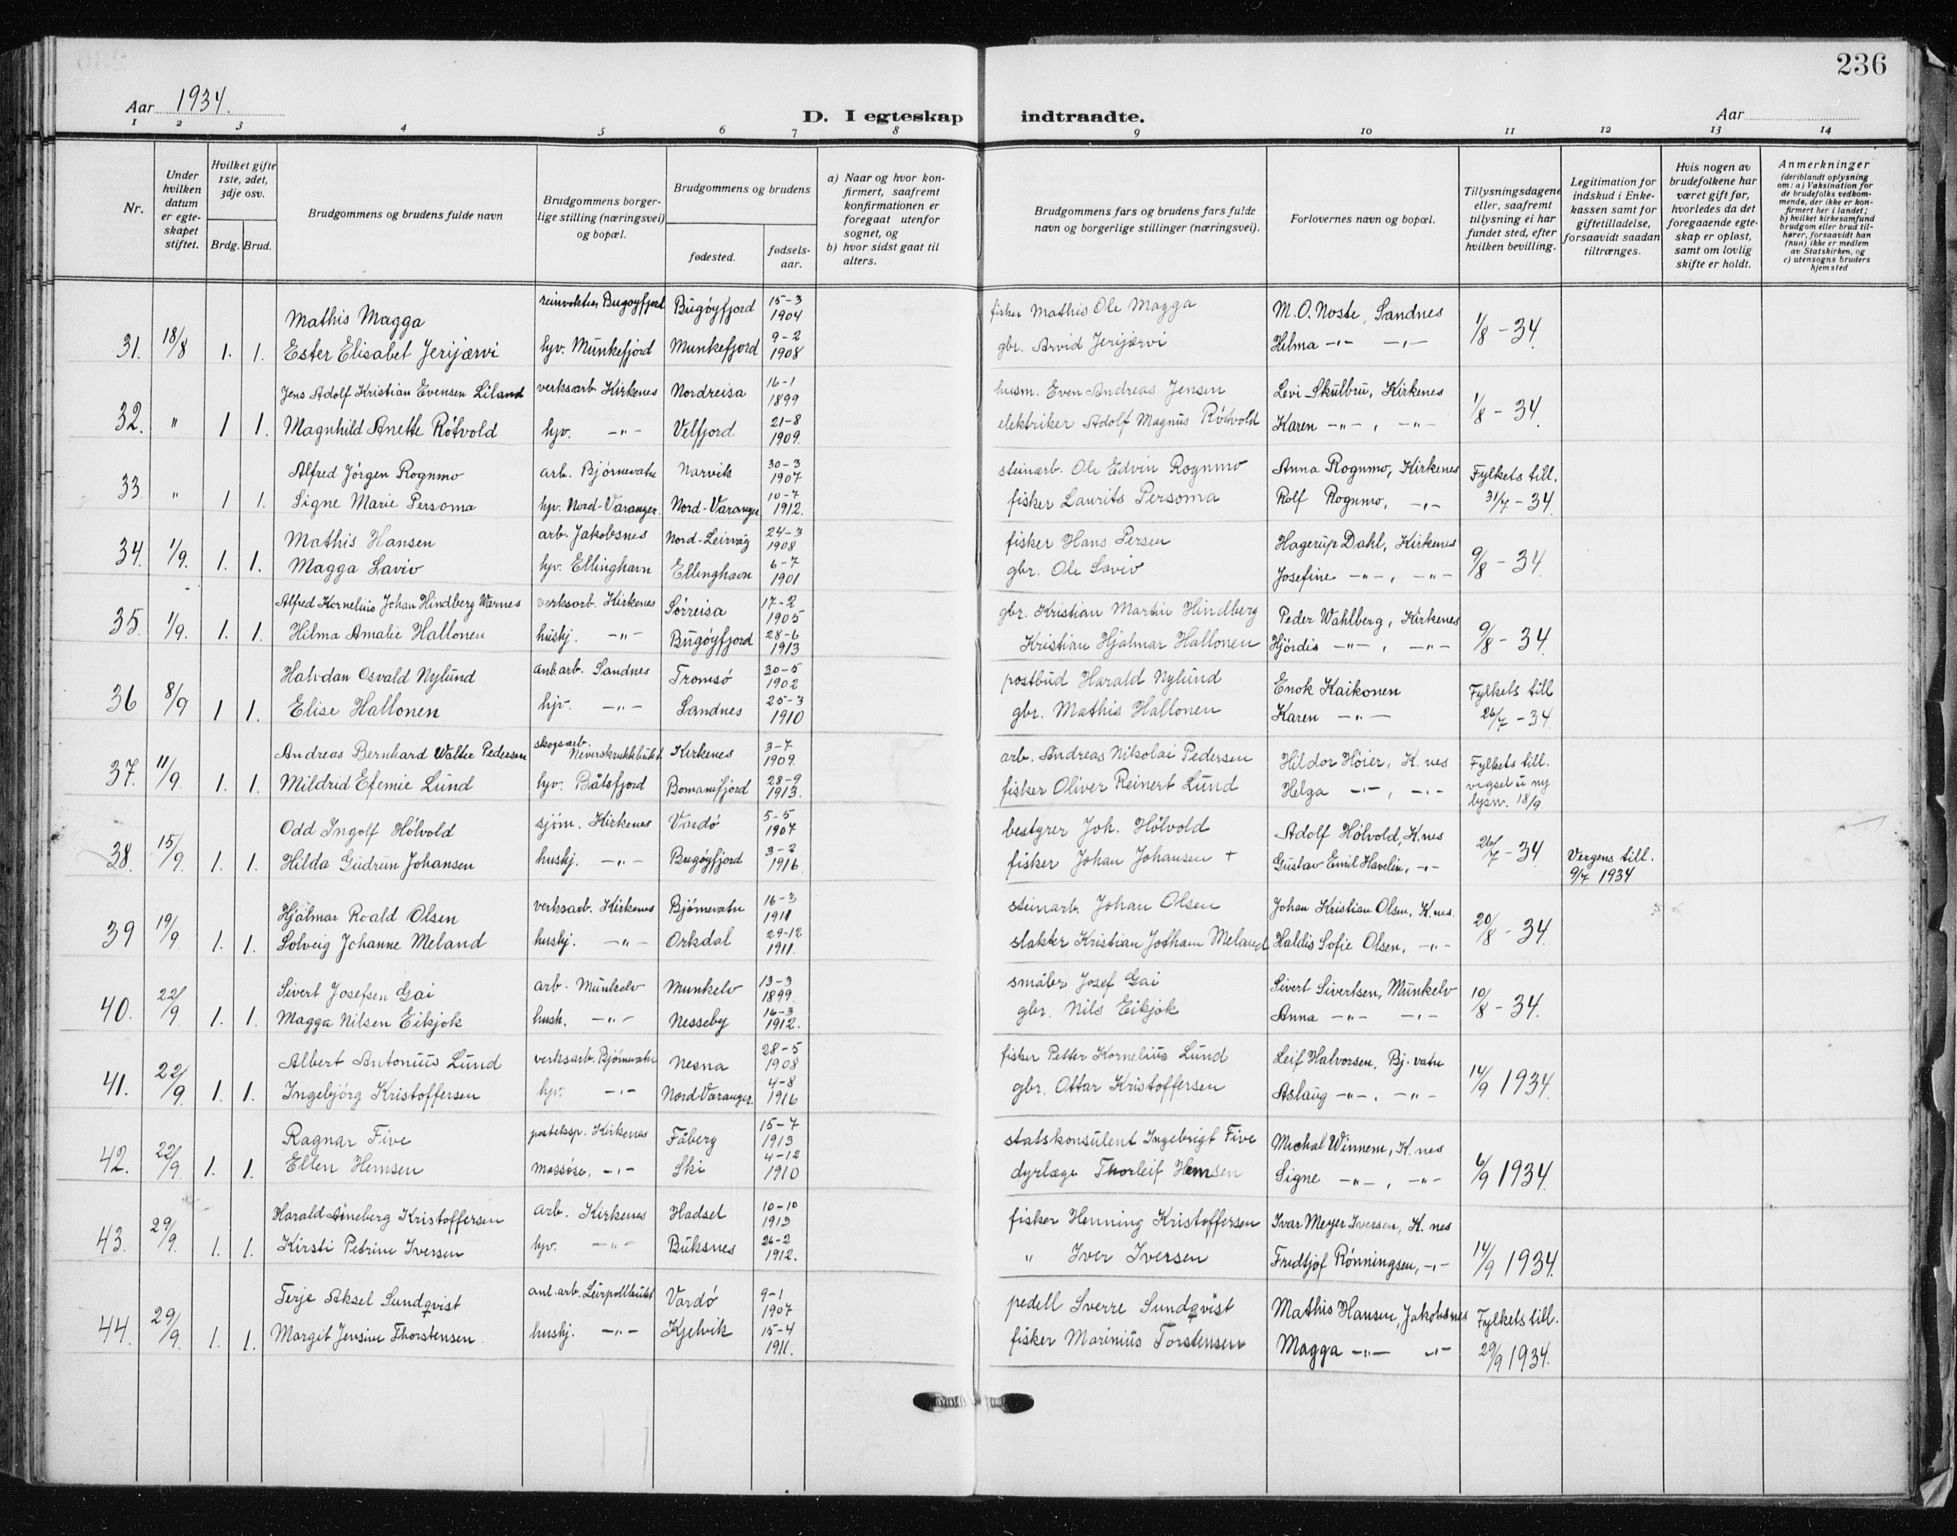 236
Aar 1934.
D. I egteskap indtraadte.
Aar
1 2 3 4 5 6 7 8 9 10 11 12 13 14
Nr.
Under hvilken datum er egteskapet stiftet.
Hvilket gifte 1ste, 2det, 3dje osv.
Brdg. Brud.
Brudgommens og brudens fulde navn
Brudgommens borgerlige stilling (næringsvei) og bopæl.
Brudgommens og brudens
fødested.
fødselsaar.
a) Naar og hvor konfirmert, saafremt konfirmationen er foregaat utenfor sognet, og
b) hvor sidst gaat til alters.
Brudgommens fars og brudens fars fulde navn og borgerlige stillinger (næringsvei).
Forlovernes navn og bopæl.
Tillysningsdagene eller, saafremt tillysning ei har fundet sted, efter hvilken bevilling.
Legitimation for indskud i Enkekassen samt for giftetilladelse, forsaavidt saadan tiltrænges.
Hvis nogen av brudefolkene har været gift før, hvorledes da det foregaaende egteskap er opløst, samt om lovlig skifte er holdt.
Anmerkninger (deriblandt oplysning om: a) Vaksination for de brudefolks vedkommende, der ikke er konfirmert her i landet; b) hvilket kirkesamfund brudgom eller brud tilhører, forsaavidt han (hun) ikke er medlem av Statskirken, og c) utensogns bruders hjemsted
Mathis Magga Bugøyfjord 15-3 1904 fisker Mathis Ole Magga M.O. Noste, Sandnes
31. 18/8 1. 1. Ester Elisabet Jerijærvi hjv. Munkefjord Munkefjord 9-2 1908 gbr. Arvid Jerijærvi Hilma -"- -"- 1/8-34.
Jens Adolf Kristian Evensen Liland verksarb. Kirkenes Nordreisa 16-1 1899 husm. Even Andreas Jensen Levi Skulbru, Kirkenes
32. " 1 1. Magnhild Anette Røtvold hjv. -"- Velfjord 21-8 1909. elektriker Adolf Magnus Røtvold Karen -"-, -"- 1/8-34.
Alfred Jørgen Rognmo arb. Bjørnevatn Narvik 30-3 1907 steinarb. Ole Edvin Rognmo Anna Rognmo, Kirkenes Fylkets till.
33. " 1 1. Signe Marie Persoma hjv. Nord-Varanger. Nord-Varanger 10-7 1912. fisker Laurits Persoma Rolf Rognmo, -"- 31/7-34.
Mathis Hansen arb. Jakobsnes Nord-Leirvåg 24-3 1908 fisker Hans Persen Hagerup Dahl, Kirkenes
34. 1/9. 1. 1. Magga Saviv hjv. Ellinghavn Ellinghavn 6-7 1901 gbr. Ole Saviv Josefine -"-, -"- 9/8-34.
Alfred Kornelius Johan Hindberg Warnes verksarb. Kirkenes Sørreisa 17-2 1905 gbr. Kristian Martin Hindberg Peder Wahlberg, Kirkenes
35. 1/9. 1. 1. Hilma Amalie Hallonen hushj. -"- Bugøyfjord 28-6 1913 Kristian Hjalmar Hallonen Hjørdis -"-, -"- 9/8-34.
Halvdan Osvald Nylund anl.arb. Sandnes Tromsø 30-5 1902 postbud Harald Nylund Enok Kaikonen Fylkets till
36 8/9 1 1. Elise Hallonen hjv. -"- Sandnes 25-3 1910 gbr. Mathis Hallonen Karen -"- 26/7-34.
Andreas Bernhard Walter Pedersen skogsarb. Kirkenes 3-7 1909. arb. Andreas Nikolai Pedersen Hildor Høier, K.nes Fylkets till.
37. 11/9. 1. 1. Mildrid Efemie Lund hjv. Båtsfjord 28-9 1913. fisker Oliver Reinert Lund Helga -"-, -"- vigsel u ny lysn. 18/9
Odd Ingolf Hølvold sjøm. Kirkenes Vardø 5-5 1907 bestyrer Joh. Hølvold Adolf Hølvold, K.nes
38. 15/9 1. 1. Hilda Gudrun Johansen hushj. -"- Bugøyfjord 3-2 1916. fisker Johan Johansen + Gustav Emil Havelin, -"- 26/7-34. Vergens till. 9/7 1934
Hjalmar Roald Olsen verksarb. Kirkenes Bjørnevatn 16-3 1911 steinarb. Johan Olsen Johan Kristian Olsen, K.nes.
39 19/9. 1. 1. Solveig Johanne Meland hushj. -"- Orkdal 29-12 1911. slakter Kristian Jotham Meland Haldis Sofie Olsen, -"- 20/8-34.
Sivert Josefsen Gai arb. Munkelv Munkelv 13-3 1899. småbr Josef Gai Sivert Sivertsen, Munkelv
40. 22/9 1. 1. Magga Nilsen Eikjok hush. -"- Nesseby 16-3 1912. gbr. Nils Eikjok Anna -"- -"- 10/8-34.
Albert Antonius Lund verksarb. Bjørnevatn Nesna 28-5 1908 fisker Petter Kornelius Lund Leif Halvorsen, Bj.vatn
41. 22/9. 1. 1. Ingebjørg Kristoffersen hjv. -"- Nord Varanger. 4-8 1916 gbr. Ottar Kristoffersen Aslaug -"-, -"- 14/9 1934.
Ragnar Five posteksp. Kirkenes Fåberg 15-7 1913 statskonsulent Ingebrigt Five Michal Winnem, K.nes
42. 22/9. 1. 1. Ellen Hemsen massøse, -"- Ski 4-12 1910 dyrlæge Thorleif Hemsen Signe -"-, -"- 6/9 1934.
Harald Arneberg Kristoffersen arb. Kirkenes Hadsel 10-10 1913 fisker Henning Kristoffersen Ivar Meyer Iversen, K.nes
43. 29/9. 1. 1. Kirsti Petrine Iversen hjv. -"- Buksnes 26-2 1912. " Iver Iversen Fredtjof Rønningsen, -"- 14/9 1934.
Terje Aksel Sundqvist anl.arb. Vardø 9-1 1907 pedell Sverre Sundqvist Mathis Hansen, Jakobsnes Fylkets till.
44. 29/9. 1. 1. Margit Jensine Thorstensen. hushj. -"- Kjelvik 15-4 1911. fisker Marinius Torstensen Magga -"- -"- 29/9 1934.